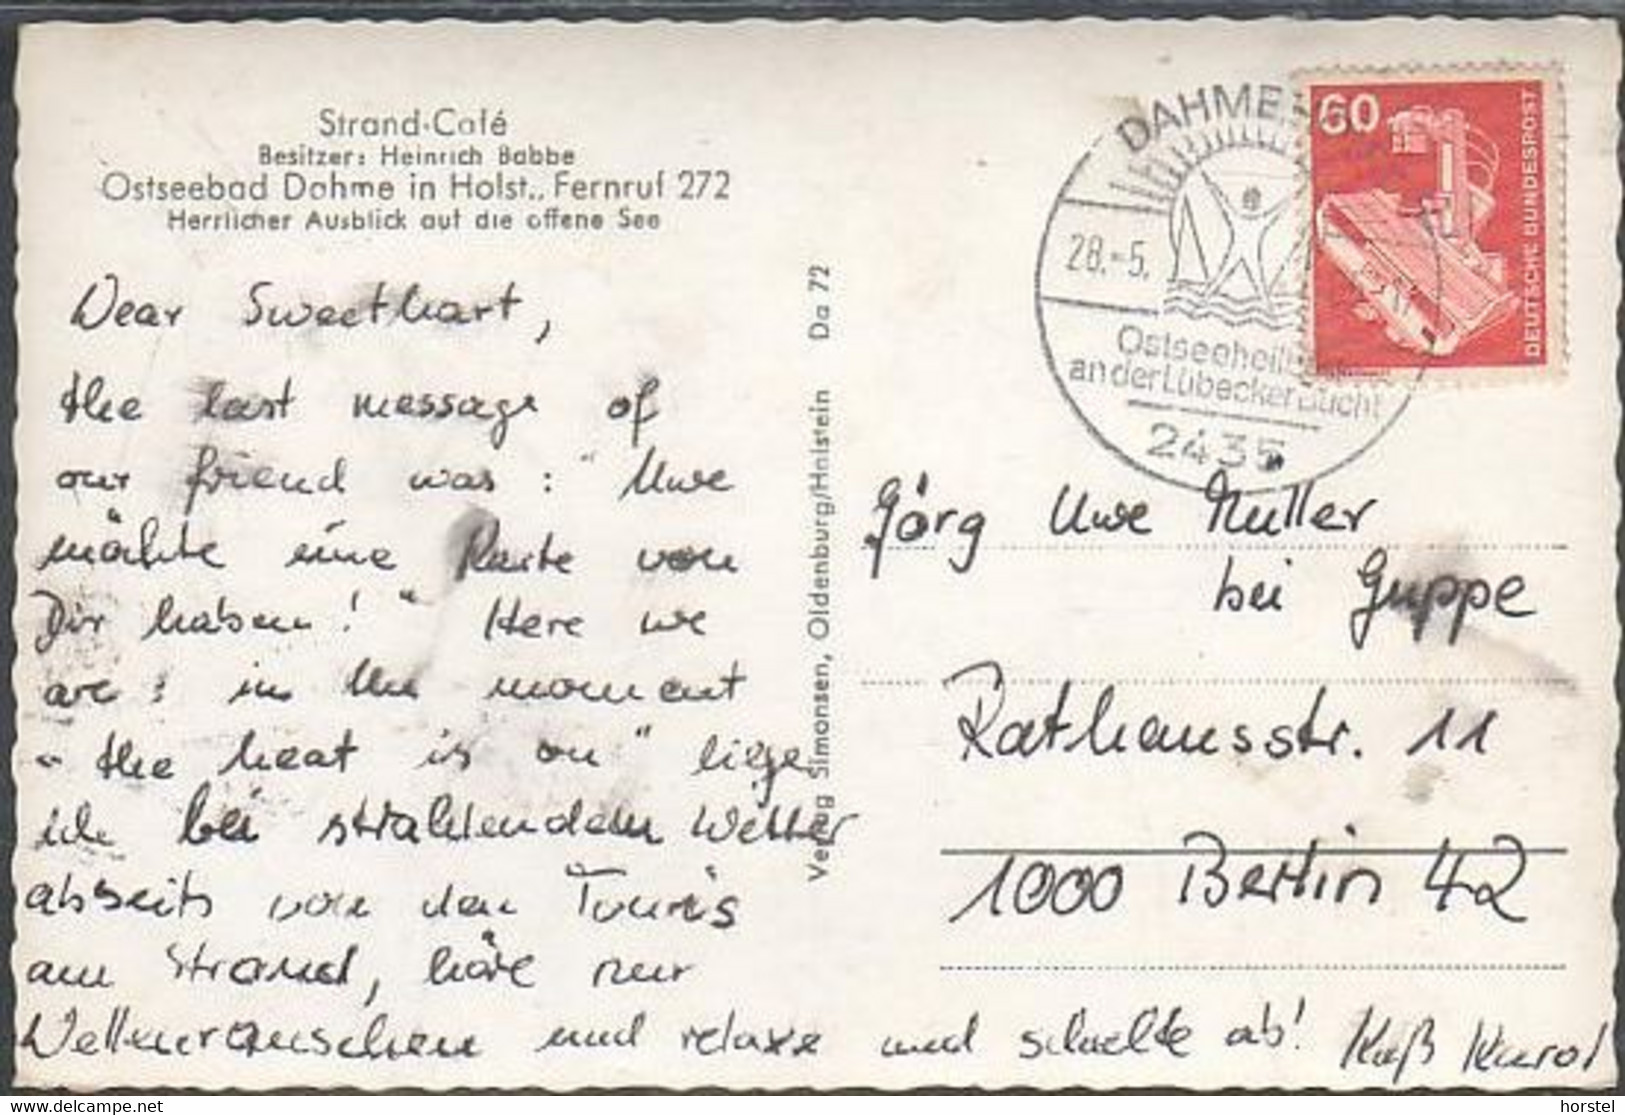 Strand-Café
Besitzer: Heinrich Babbe
Ostseebad Dahme in Holst., Fernruf 272
Herrlicher Ausblick auf die offene See
Dear Sweethart,
the last message of
our friend was: "Uwe
möchte eine Karte von
Dir haben!" Here we
are: in the moment
"the heat is on" liege
ich bei strahlendem Wetter
abseits von den Touris
am Strand, höre nur
Wellenrauschen und relaxe und schalte ab! Kuß Karol
Verlag Simonsen, Oldenburg/Holstein Da 72
DAHME
28.-5.
Ostseeheilbad
an der Lübecker Bucht
2435
60
DEUTSCHE BUNDESPOST
Jörg Uwe Müller
bei Guppe
Rathausstr. 11
1000 Berlin 42
delcampe.net
horstel